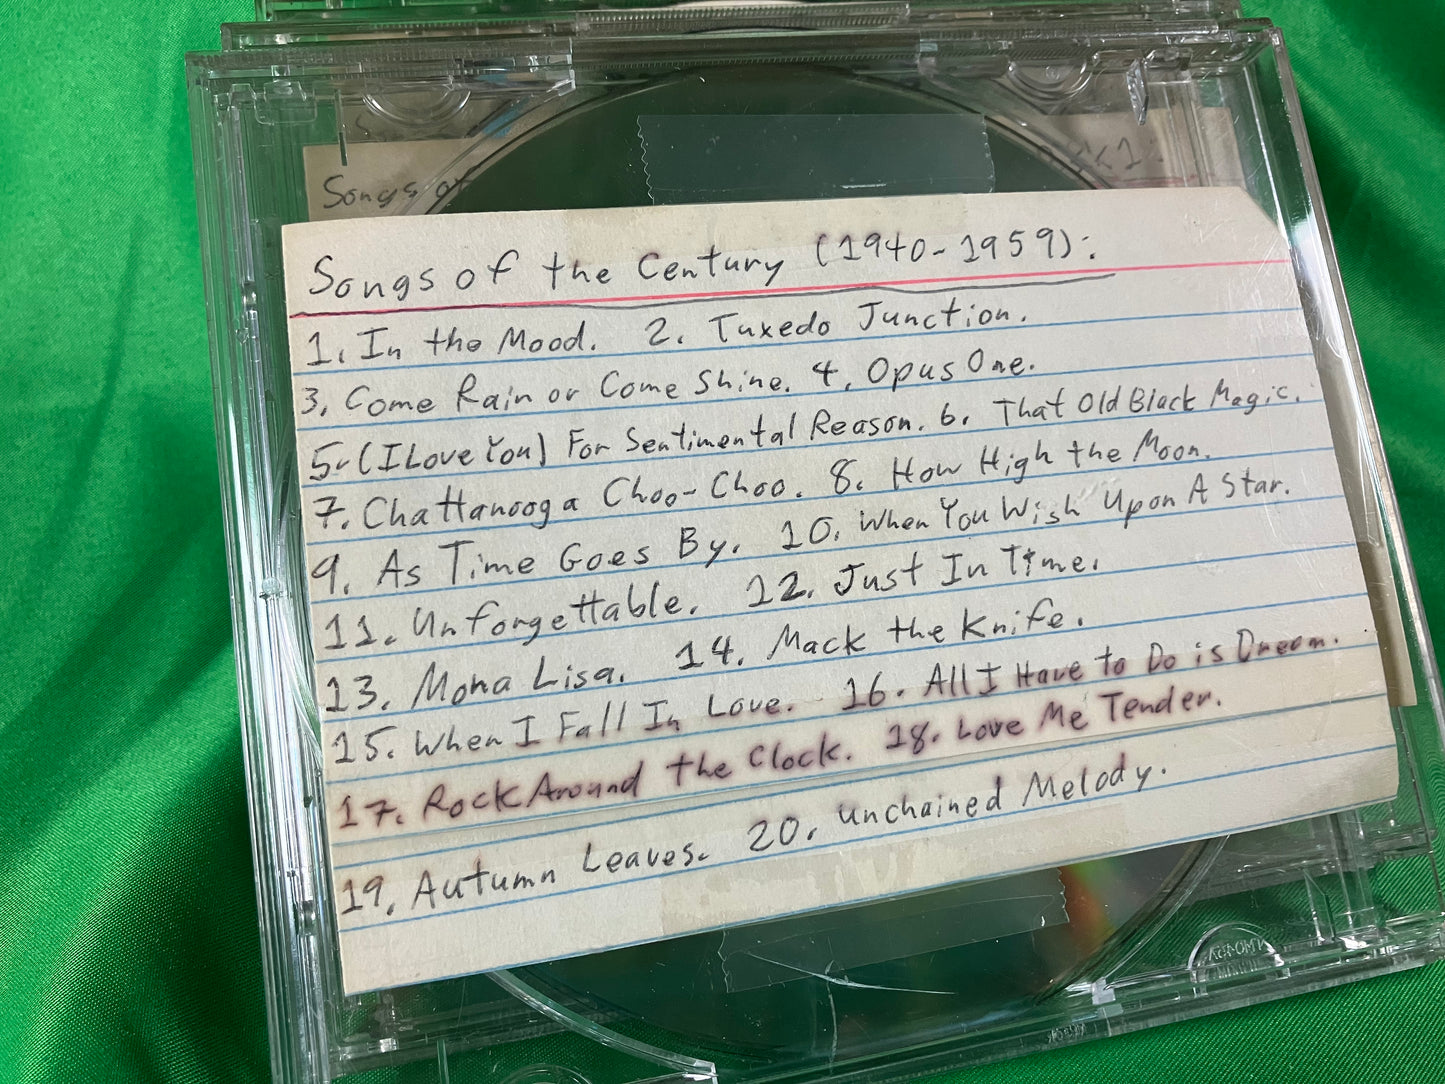 Songs of
Songs of the Century (1940-1959):
1. In the Mood. 2. Tuxedo Junction.
3. Come Rain or Come Shine. 4. Opus One.
5. (I Love You) For Sentimental Reason. 6. That Old Black Magic.
7. Chattanooga Choo-Choo. 8. How High the Moon.
9. As Time Goes By. 10. When You Wish Upon A Star.
11. Unforgettable. 12. Just In Time.
13. Mona Lisa. 14. Mack the Knife.
15. When I Fall In Love. 16. All I Have to Do is Dream.
17. Rock Around the Clock. 18. Love Me Tender.
19. Autumn Leaves. 20. Unchained Melody.